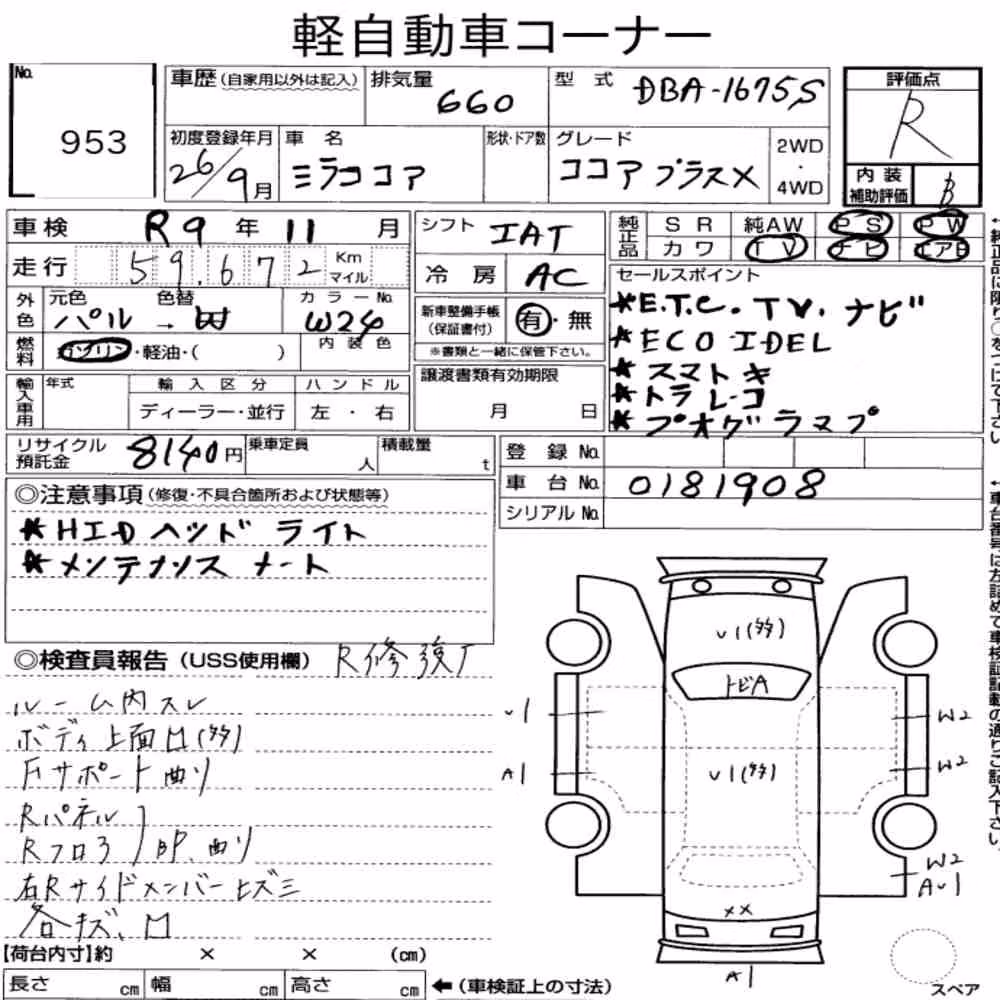 軽自動車コーナー
No. 953
車歴(自家用以外は記入) 排気量 660 型式 DBA-1675S 評価点 R
初度登録年月 26/9月 車名 ミラココア 形状・ドア数 グレード ココア プラスX 2WD・4WD 内装補助評価 B
車検 R9年11月 シフト IAT 純正品 SR 純AW PS PW
走行 59,672 Km マイル 冷房 AC カワ TV ナビ エアB
外色 元色 パール → 色替 カラーNo. W24 内装色
燃料 ガソリン・軽油・( )
新車整備手帳(保証書付) 有・無
※書類と一緒に保管下さい。
セールスポイント
*E.T.C. TV. ナビ
*ECO IDEL
*スマトキ
*トラレコ
*プオグラマプ
輸入車用 年式 輸入区分 ハンドル
ディーラー・並行 左・右
譲渡書類有効期限
月 日
リサイクル預託金 8140円 乗車定員 人 積載量 t
登録No.
車台No. 0181908
シリアルNo.
◎注意事項(修復・不具合箇所および状態等)
*HID ヘッド ライト
*メンテナンス ノート
◎検査員報告(USS使用欄) R修復歴
ルーム内スレ
ボディ上面凹(多)
Fサポート曲り
Rパネル
Rフロア BP、曲り
右Rサイドメンバーヒズミ
各キズ、凹
【荷台内寸】約 × × (cm)
長さ cm 幅 cm 高さ cm ←(車検証上の寸法)
U1(多)
トビA
U1
A1
U1(多)
W2
W2
W2
AU1
××
A1
スペア
←純正品に限り○をつけて下さい
←車台番号は左詰めで車検証記載の通りご記入下さい。